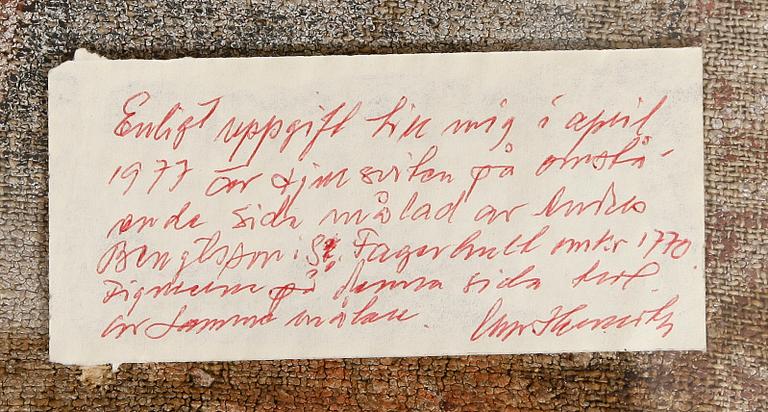 Enligt uppgift till mig i april
1977 är sviten på omstå-
ende sida målad av Anders
Bengtsson i St. Fagerhult omkr 1770.
Figurerna på denna sida trol.
av samma målare.